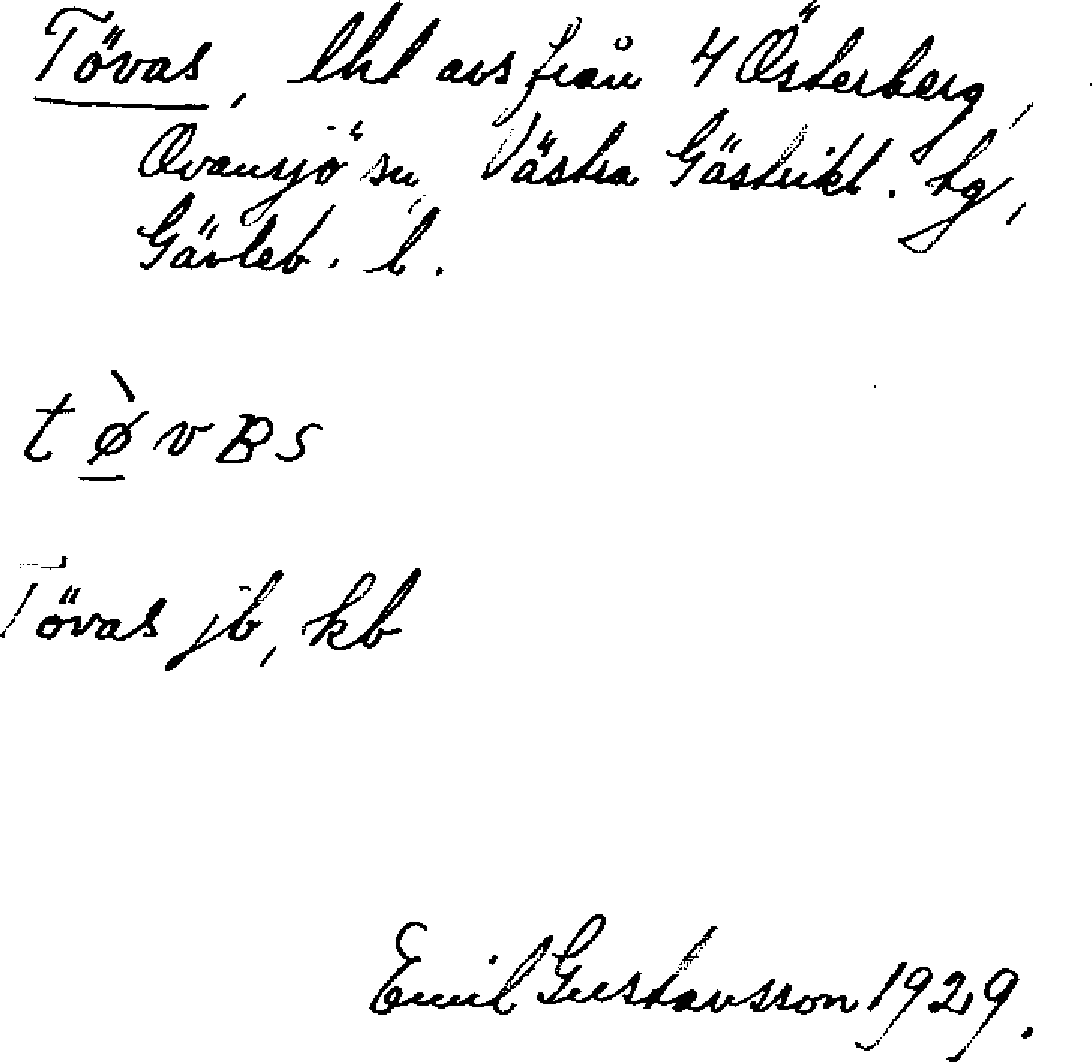 Tövas, lht avs från 4 Österberg,
Ovansjö sn, Västra Gästrikl. hg,
Gävleb. l.
t ø̠̀ v B s
Tövas jb, kb
Emil Gustavsson 1929.